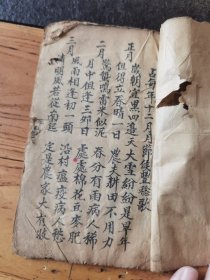 占每年十二月月節候豐稔歌
正月 歲朝宜黑四邊天 大雪紛紛是旱年
但得立春晴一日 農夫耕田不用力
二月 驚蟄聞雷米似泥 春分有雨病人稀
月中但逢三卯日 處處棉花豆麥肥
三月 風雨相逢初一頭 沿村瘟疫病人愁
清明風若從南起 定是農家大有收